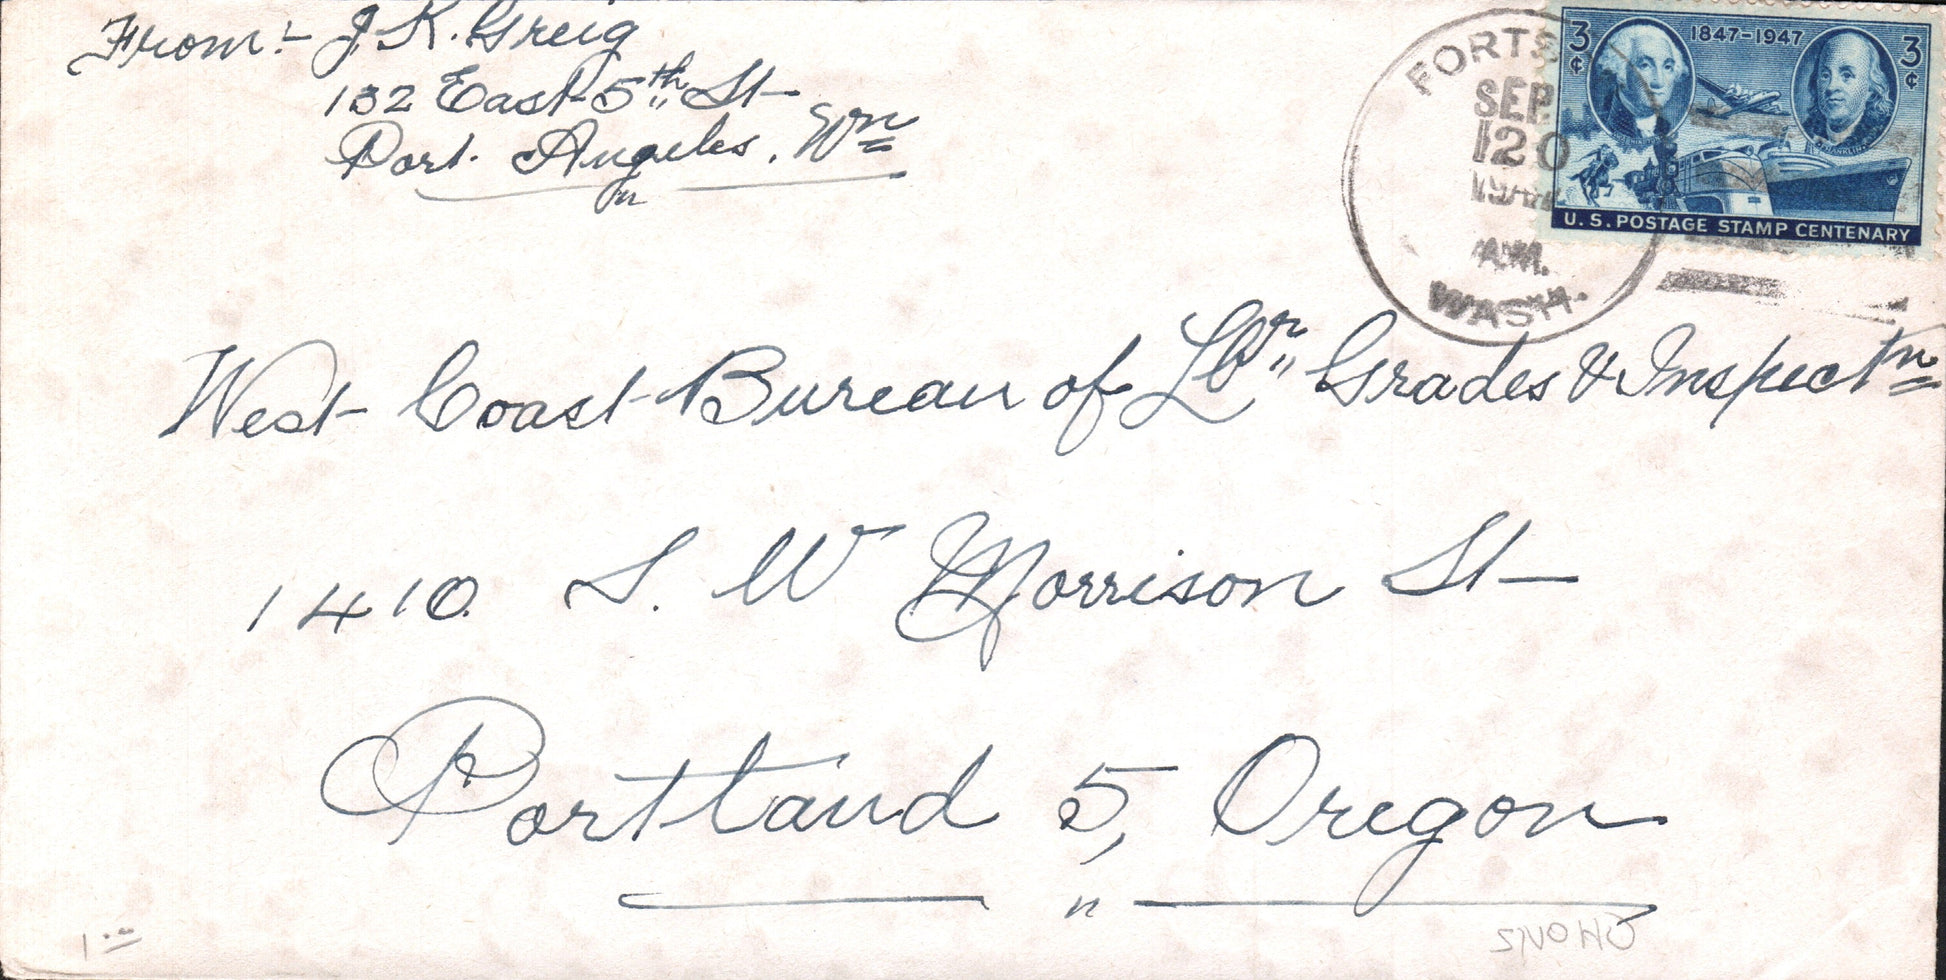 From:- J. K. Greig
132 East 5th St
Port Angeles, Wn
West Coast Bureau of Lbr Grades & Inspectn
1410 S. W Morrison St
Portland 5, Oregon
SEP
120
A.M.
WASH.
3¢ 1847-1947 3¢
FRANKLIN
U.S. POSTAGE STAMP CENTENARY
1.00